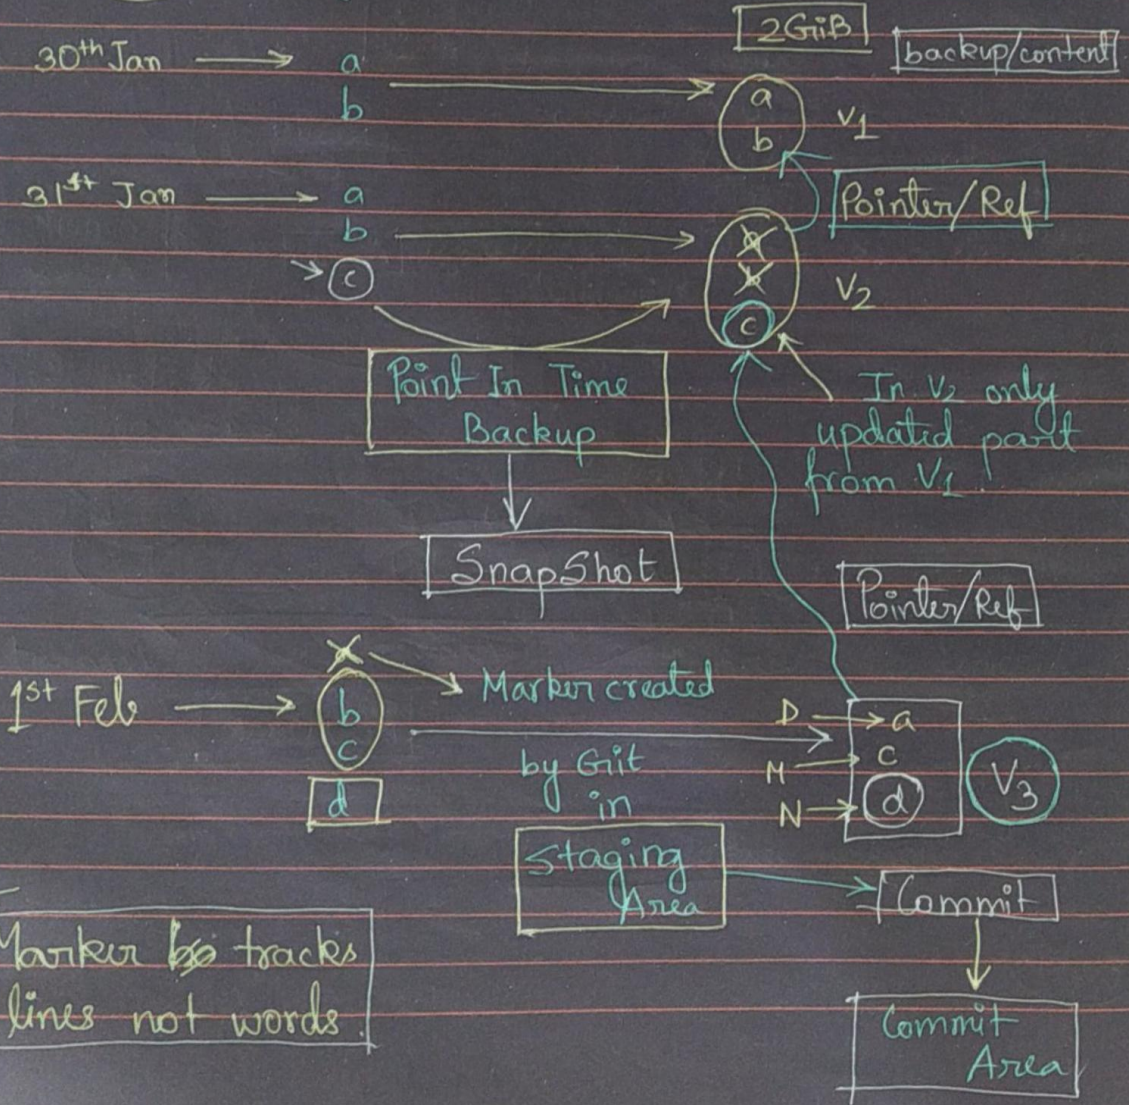 2GiB
backup/content
30th Jan
a
b
a
b
V1
31st Jan
a
b
c
Pointer/Ref
c
V2
Point In Time
Backup
In V2 only
updated part
from V1.
SnapShot
Pointer/Ref
1st Feb
b
c
d
Marker created
by Git
in
Staging
Area
D
a
M
c
N
d
V3
Commit
Commit
Area
Marker tracks
lines not words.